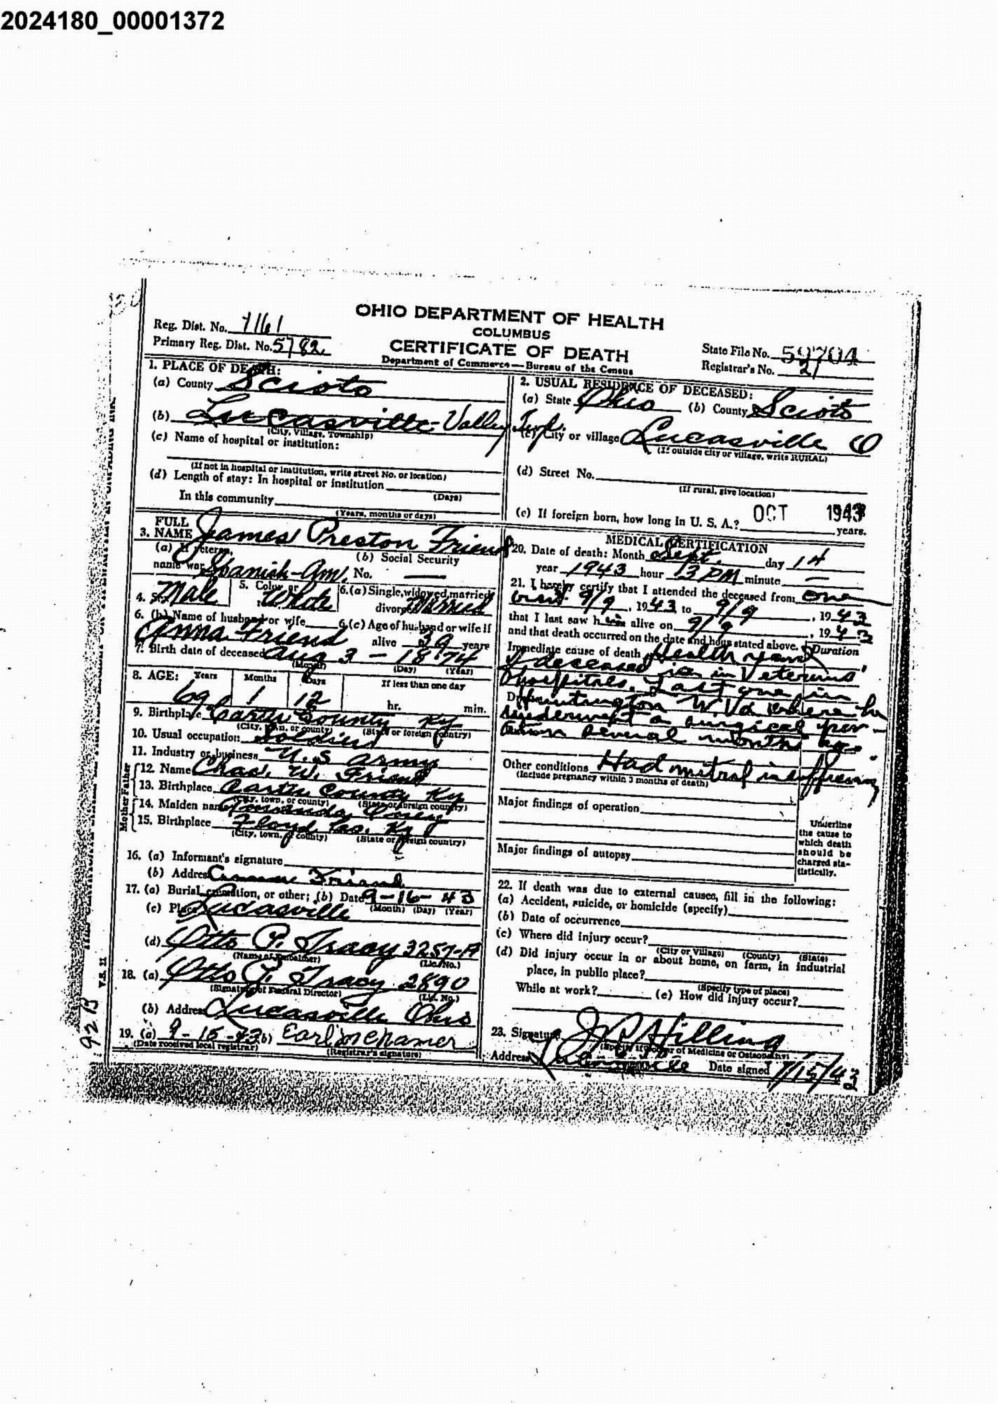 2024180_00001372
OHIO DEPARTMENT OF HEALTH
COLUMBUS
CERTIFICATE OF DEATH
Department of Commerce—Bureau of the Census
Reg. Dist. No. 1161
Primary Reg. Dist. No. 5782
State File No. 59704
Registrar's No. 21
1. PLACE OF DEATH:
(a) County Scioto
(b) Lucasville-Valley Twp.
(City, Village, Township)
(c) Name of hospital or institution:
(If not in hospital or institution, write street No. or location)
(d) Length of stay: In hospital or institution
(Days)
In this community
(Years, months or days)
2. USUAL RESIDENCE OF DECEASED:
(a) State Ohio (b) County Scioto
(c) City or village Lucasville O
(If outside city or village, write RURAL)
(d) Street No.
(If rural, give location)
(e) If foreign born, how long in U. S. A.? years.
OCT 1943
3. FULL NAME James Preston Friend
(a) If veteran, name war Spanish-Am.
(b) Social Security No.
4. Sex Male
5. Color or White
6. (a) Single, widowed, married, divorced Married
6. (b) Name of husband or wife Anna Friend
6. (c) Age of husband or wife if alive 39 years
7. Birth date of deceased Aug 3 - 1874
(Month) (Day) (Year)
8. AGE: Years Months Days If less than one day
69 1 12 hr. min.
9. Birthplace Carter County Ky
(City, town, or county) (State or foreign country)
10. Usual occupation Soldier
11. Industry or business U.S Army
Father
12. Name Chas. W. Friend
13. Birthplace Carter County Ky
(City, town, or county) (State or foreign country)
Mother
14. Maiden name Amanda
15. Birthplace Floyd Co. Ky
(City, town, or county) (State or foreign country)
16. (a) Informant's signature
(b) Address Anna Friend
17. (a) Burial, cremation, or other; (b) Date 9-16-43
(Month) (Day) (Year)
(c) Place Lucasville
(d) Otto P. Tracy 3257-A
(Name of Embalmer) (Lic. No.)
18. (a) Otto P. Tracy 2890
(Signature of Funeral Director) (Lic. No.)
(b) Address Lucasville Ohio
19. (a) 9-15-43 (b) Earl
(Date received local registrar) (Registrar's signature)
V.S. 11
MEDICAL CERTIFICATION
20. Date of death: Month Sept. day 14
year 1943 hour 13 PM minute
21. I hereby certify that I attended the deceased from one
visit 9/9, 1943 to 9/9, 1943
that I last saw him alive on 9/9, 1943
and that death occurred on the date and hour stated above.
Duration
Immediate cause of death
deceased in Veterans'
Hospitals. Last one in
Due to Huntington W.Va where he
underwent a surgical oper-
ation several months ago
Other conditions Had mitral
(Include pregnancy within 3 months of death)
Major findings of operation
Major findings of autopsy
Underline the cause to which death should be charged statistically.
22. If death was due to external causes, fill in the following:
(a) Accident, suicide, or homicide (specify)
(b) Date of occurrence
(c) Where did injury occur?
(City or Village) (County) (State)
(d) Did injury occur in or about home, on farm, in industrial
place, in public place?
(Specify type of place)
While at work? (e) How did injury occur?
23. Signature
(Specify if Doctor of Medicine or Osteopathy)
Address Lucasville Date signed 9/15/43